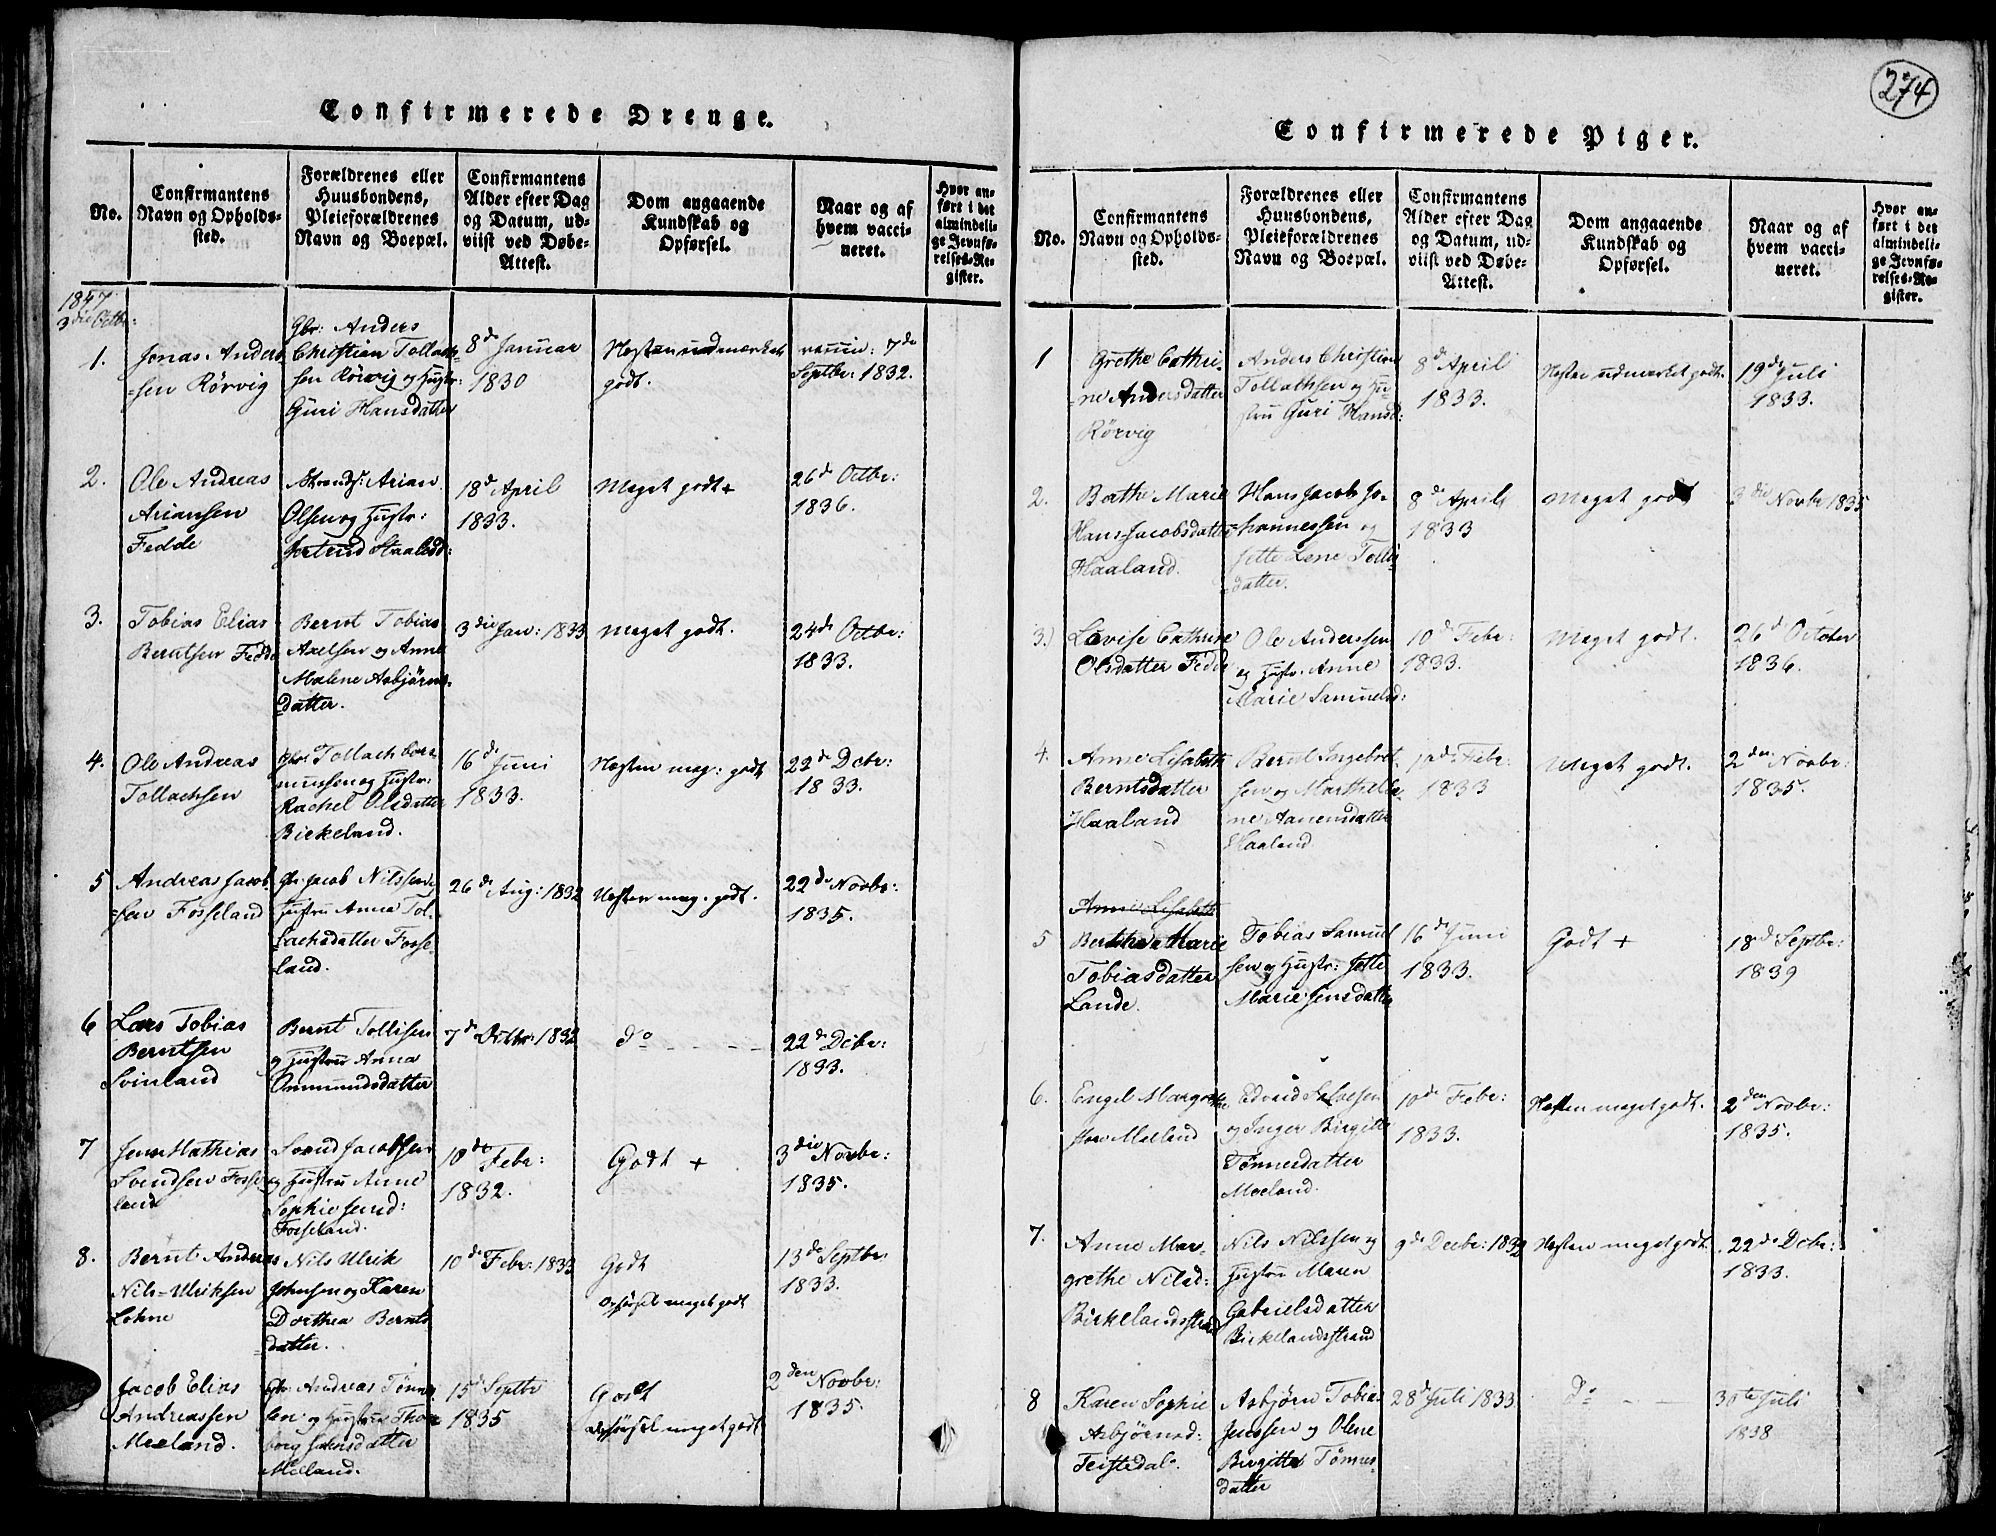 Confirmerede Drenge.
No.
Confirmantens
Navn og Opholds-
sted.
Forældrenes eller
Huusbondens,
Pleieforældrenes
Navn og Boepæl.
Confirmantens
Alder efter Dag
og Datum, ud-
viist ved Døbe-
Attest.
Dom angaaende
Kundskab og
Opførsel.
Naar og af
hvem vacci-
neret.
Hvor an-
ført i det
almindeli-
ge Jevnfø-
relses-Re-
gister.
1847
3die Octbr:
1.
Jonas Anders
=sen Rörvig
Gbr: Anders
Christian Tollach-
sen Rörvig og Hustr:
Guri Hansdatter
8de Januar
1830
Næsten udmærket
godt.
vaccin: 7de
Septbr: 1832.
2.
Ole Andreas
Ariansen
Fedde
Strands: Arian
Olsen og Hustr:
Jertrud Staalesd:
18de April
1833.
Meget godt +
26de Octbr:
1836.
3.
Tobias Elias
Berntsen Fedde
Bernt Tobias
Axelsen og Anne
Malene Asbjörns-
datter.
3die Jan: 1833
Meget godt.
24de Octbr:
1833.
4.
Ole Andreas
Tollachsen
Gbr: Tollach
og Hustr:
Rachel Olsdatter
Birkeland.
16de Juni
1833.
Næsten meg: godt
22de Dcbr:
1833.
5
Andreas Jacob
=sen Fosseland
Gbr: Jacob Nilssen og
Hustru Anna Tol-
lachsdatter Fosse-
land.
26de Aug: 1832
Næsten meg. godt.
22de Novbr:
1835.
6
Lars Tobias
Berntsen
Svinland
Bernt Tollisen
og Hustru Anna
Ommundsdatter
7de Octbr: 1832
do - - - -
22de Dcbr:
1833.
7
Jens Mathias
Svendsen Fosse
land
Svend Jacobsen
og Hustru Anne
Sophie Jensd:
Fosseland.
10de Febr:
1832.
Godt +
3die Novbr:
1835.
8.
Bernt Andreas
Nils-Ulriksen
Lohne
Nils Ulrik
Johnsen og Karen
Dorthea Bernts
datter.
10de Febr: 1833
Godt
Opförsel meget godt
13de Septbr:
1833.
Jacob Elias
Andreassen
Meeland.
Gbr: Andreas Tönne
sen og Hustru Thor
borg Jahnsdatter
Meeland.
15de Septbr
1835
Godt
Opförsel meget godt
2den Novbr:
1835
274
Confirmerede Piger.
No.
Confirmantens
Navn og Opholds-
sted.
Forældrenes eller
Huusbondens,
Pleieforældrenes
Navn og Boepæl.
Confirmantens
Alder efter Dag
og Datum, ud-
viist ved Døbe-
Attest.
Dom angaaende
Kundskab og
Opførsel.
Naar og af
hvem vacci-
neret.
Hvor an-
ført i det
almindeli-
ge Jevnfø-
relses-Re-
gister.
1
Grethe Cathri-
ne Andersdatter
Rörvig
Anders Christian
Tollachsen og Hu-
stru Guri Hansd:
8de April
1833.
Næsten udmærket godt.
19de Juli
1833.
2.
Bærthe Marie
Hans-Jacobsdatter
Haaland.
Hans Jacob Jo-
hannessen og
Jette Lene Tollis
datter.
8de April
1833
Meget godt
3die Novbr 1835
3.)
Lovise Cathrine
Olsdatter Fedde
Ole Anderssen
og Hustr: Anne
Marie Samuelsd:
10de Febr:
1833.
Meget godt.
26de October
1836.
4.
Anne Lisabeth
Berntsdatter
Haaland
Bernt Ingebret
sen og Marthe Le-
ne Aanensdatter
Haaland
10de Febr:
1833
Meget godt.
2den Novbr:
1835.
Anne Lisabeth
5
Berthe Marie
Tobiasdatter
Lande.
Tobias Samuel
sen og Hustr: Jette
Marie Jensdatter
16de Juni
1833.
Godt +
18de Septbr:
1839
6.
Engel Margrethe
Meeland
Edvard Salvesen
og Inger Birgitte
Tönnesdatter
Meeland.
10de Febr:
1833.
Næsten meget godt.
2den Novbr:
1835.
7.
Anne Mar-
grethe Nilsd:
Birkelandsstrand
Nils Nilssen og
Hustru Maren
Gabrielsdatter
Birkelandsstrand
9de Decbr: 1832
Næsten meget godt.
22de Dcbr:
1833.
8
Karen Sophie
Asbjörnsd:
Feistedal.
Asbjörn Tobias
Jenssen og Olene
Birgitte Tönnes-
datter
28de Juli 1833
do - -
30te Juli
1838